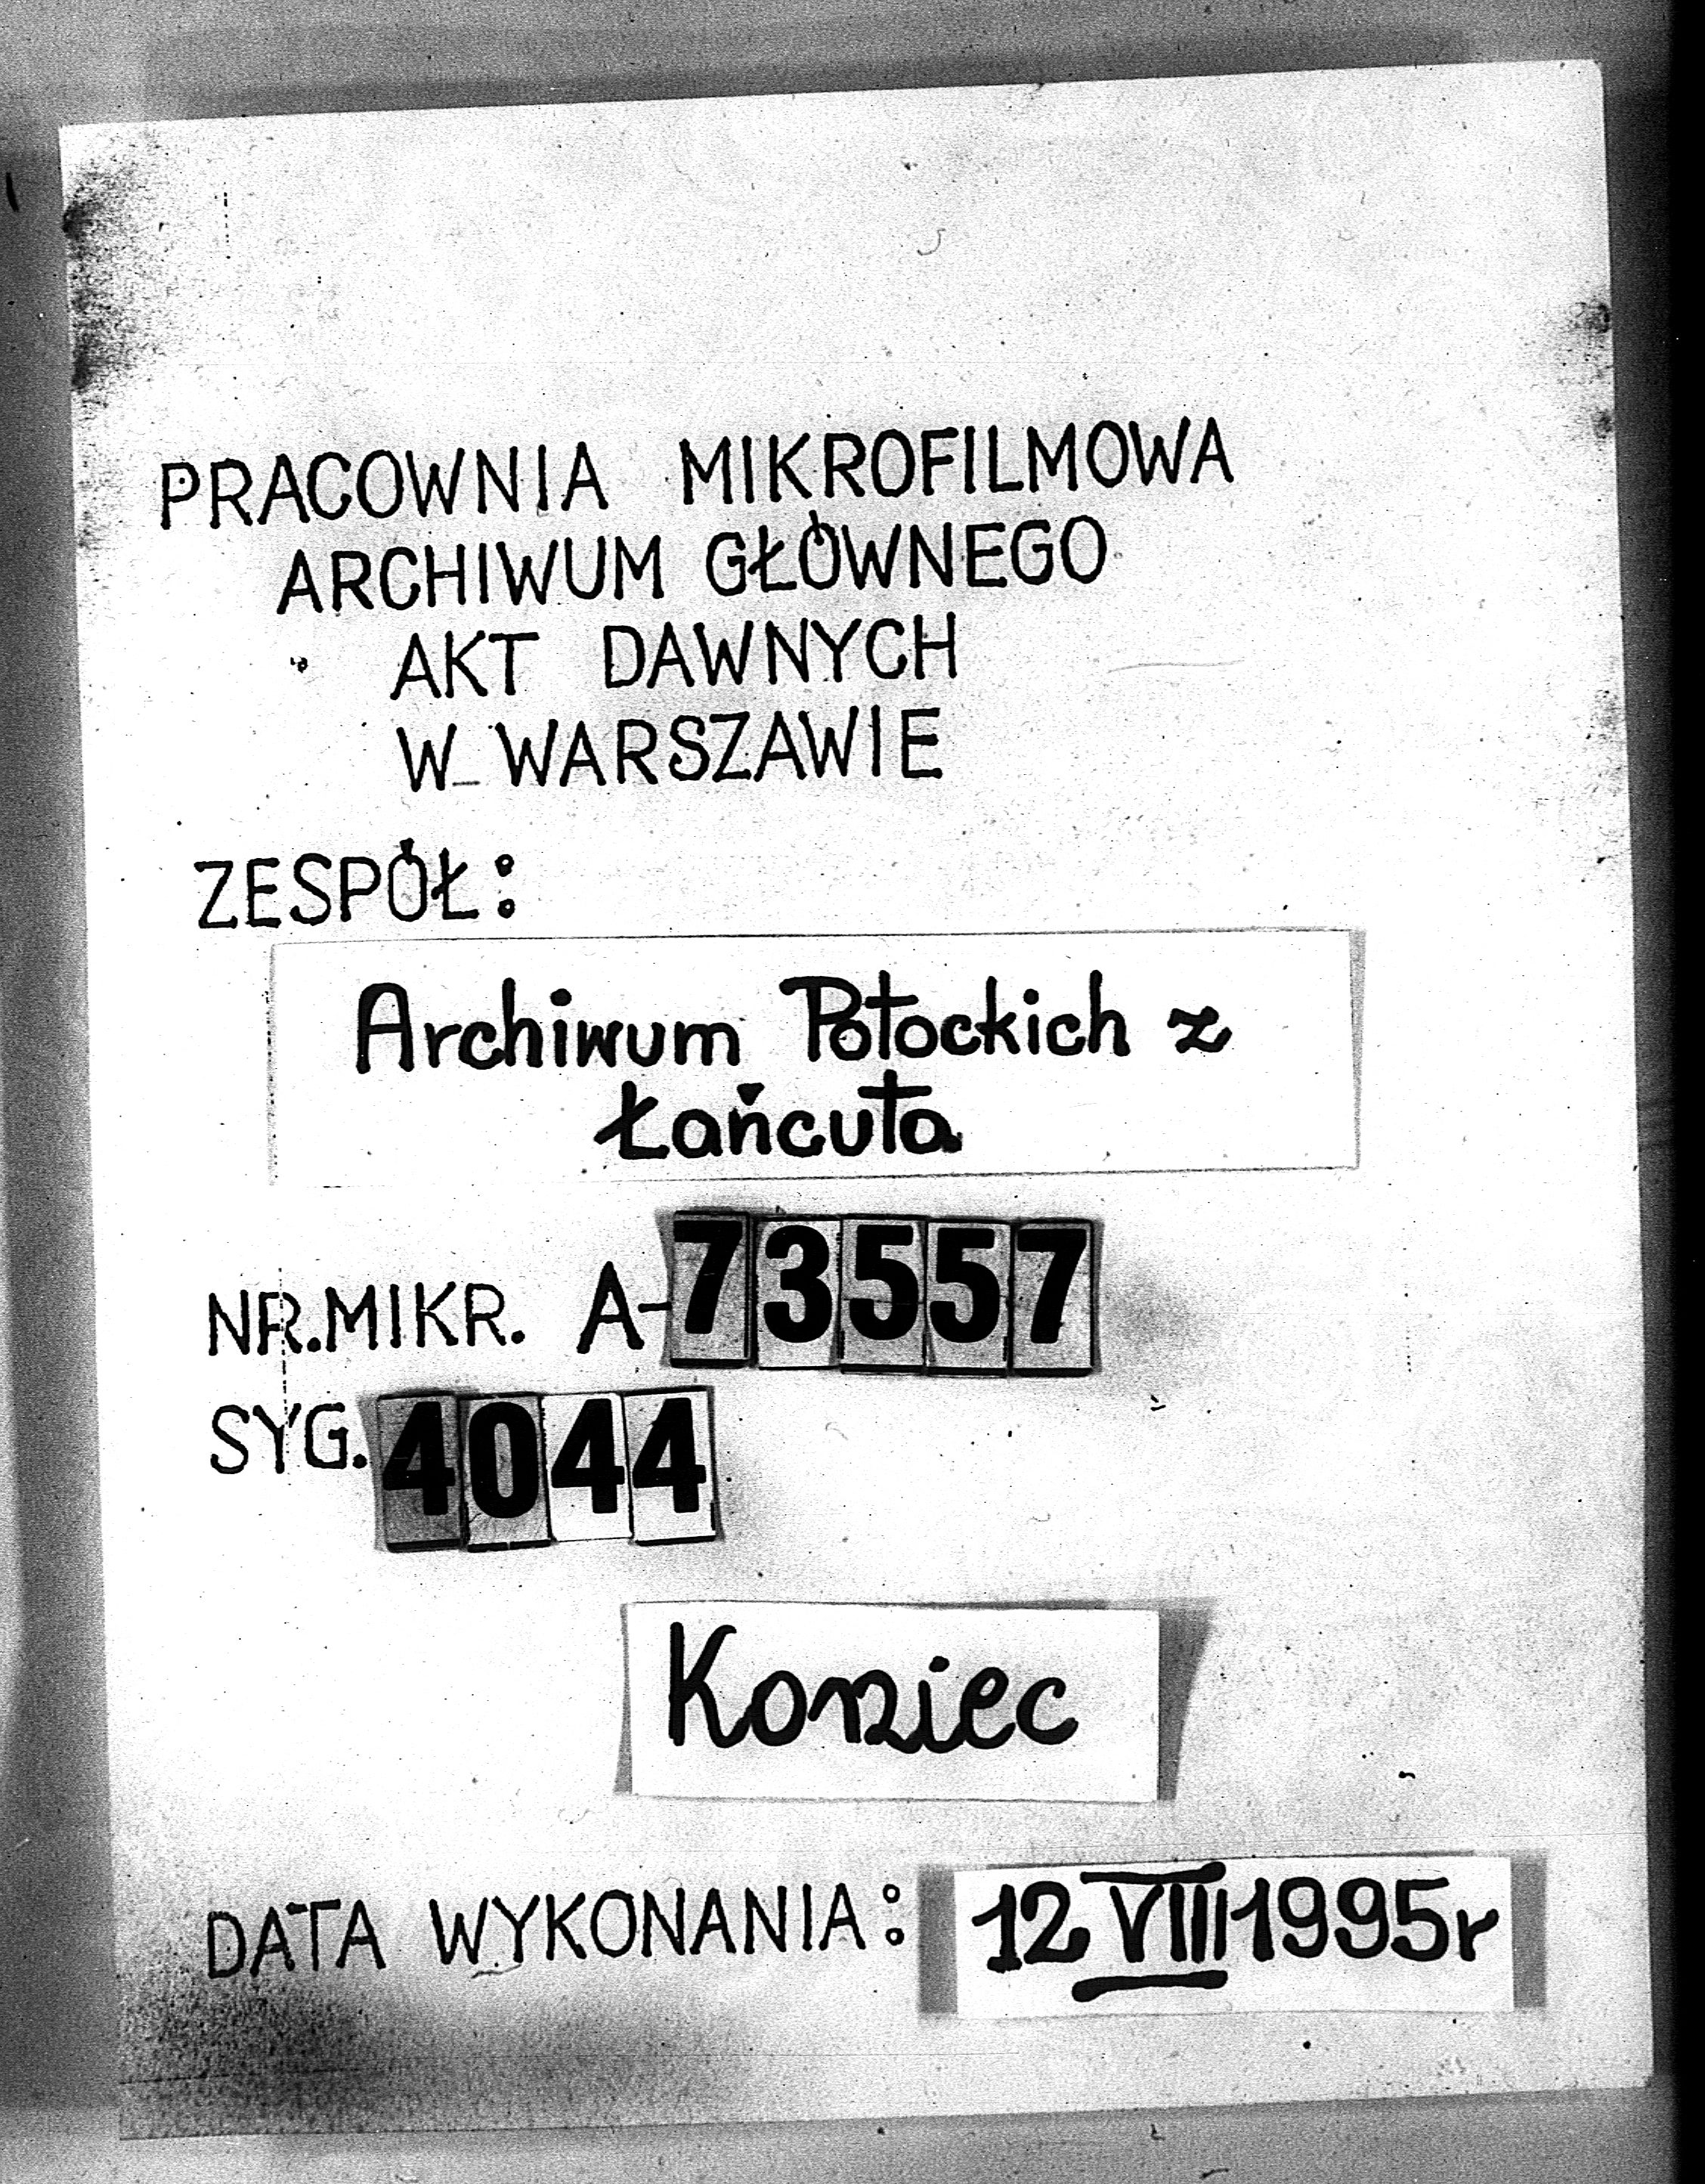 PRACOWNIA MIKROFILMOWA
ARCHIWUM GŁÓWNEGO
AKT DAWNYCH
W WARSZAWIE
ZESPÓŁ:
Archiwum Potockich z
Łańcuta
NR.MIKR. A-73557
SYG. 4044
Koniec
DATA WYKONANIA: 12 VIII 1995r